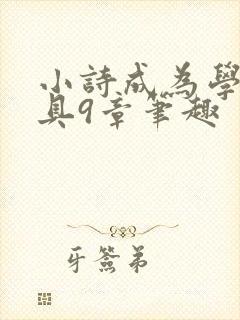 小詩成為學
具9章筆趣
牙簽弟